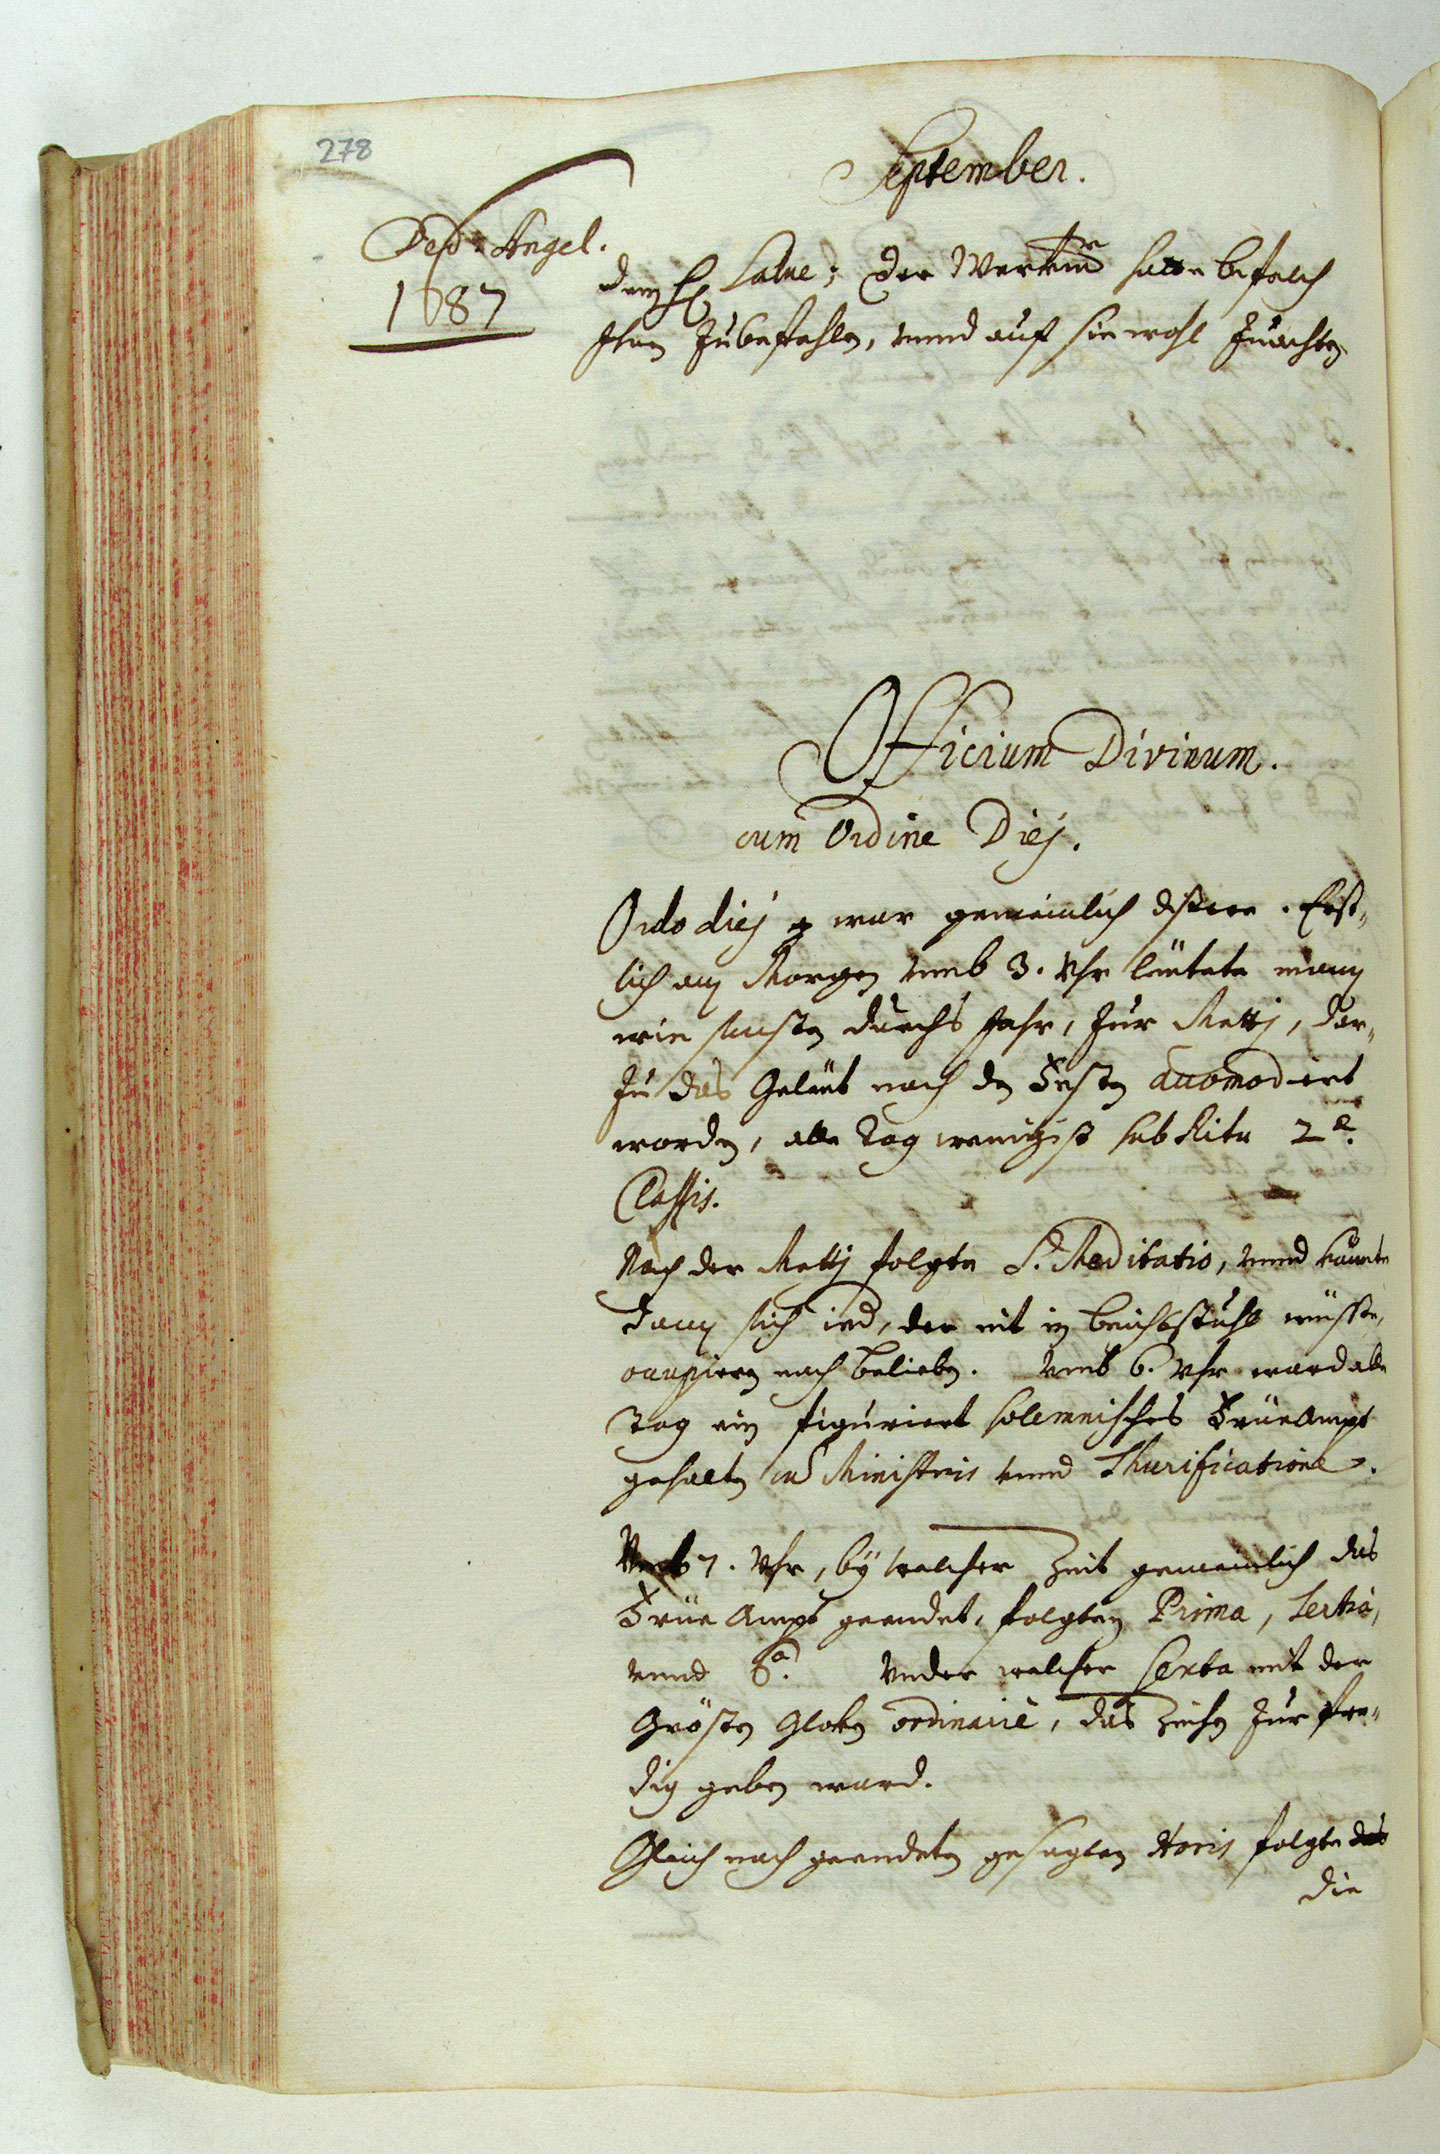 278
September.
Ded: Angel.
1687
dem H. Salve; der Werkmr hatte befelch
Ihnen Zubefehlen, vnnd auf sie wohl Zuachten.
Officium Divinum.
cum Ordine Diej.
Ordo diej war gemeinlich diser. Erst-
lich am Morgen vmb 3. Vhr leütete mann
wie sunsten durchs Jahr, Zur Mettj, dar-
Zu das Geleüt nach den Festen accomodiert
worden, alle Tag wenigist sub Ritu 2ae.
Classis.
Nach der Mettj folgte S. Meditatio, vnnd konnte
dann sich ied, der nit in Beichtstuhl müsste,
occupieren nach belieben. Vmb 6. Vhr ward alle
Tag ein figuriert solemnisches FrüeAmpt
gehalten cum Ministris vnnd Thurificatione.
Vmb 7. Vhr, bÿ welcher Zeit gemeinlich das
Früe Ampt geendet, folgten Prima, Tertia,
vnnd 6a. Vnder welcher Sexta mit der
Grösten Gloken ordinariè, das Zeichen Zur Pre-
dig geben ward.
Gleich nach geendeten gesagten Horis folgte das
die